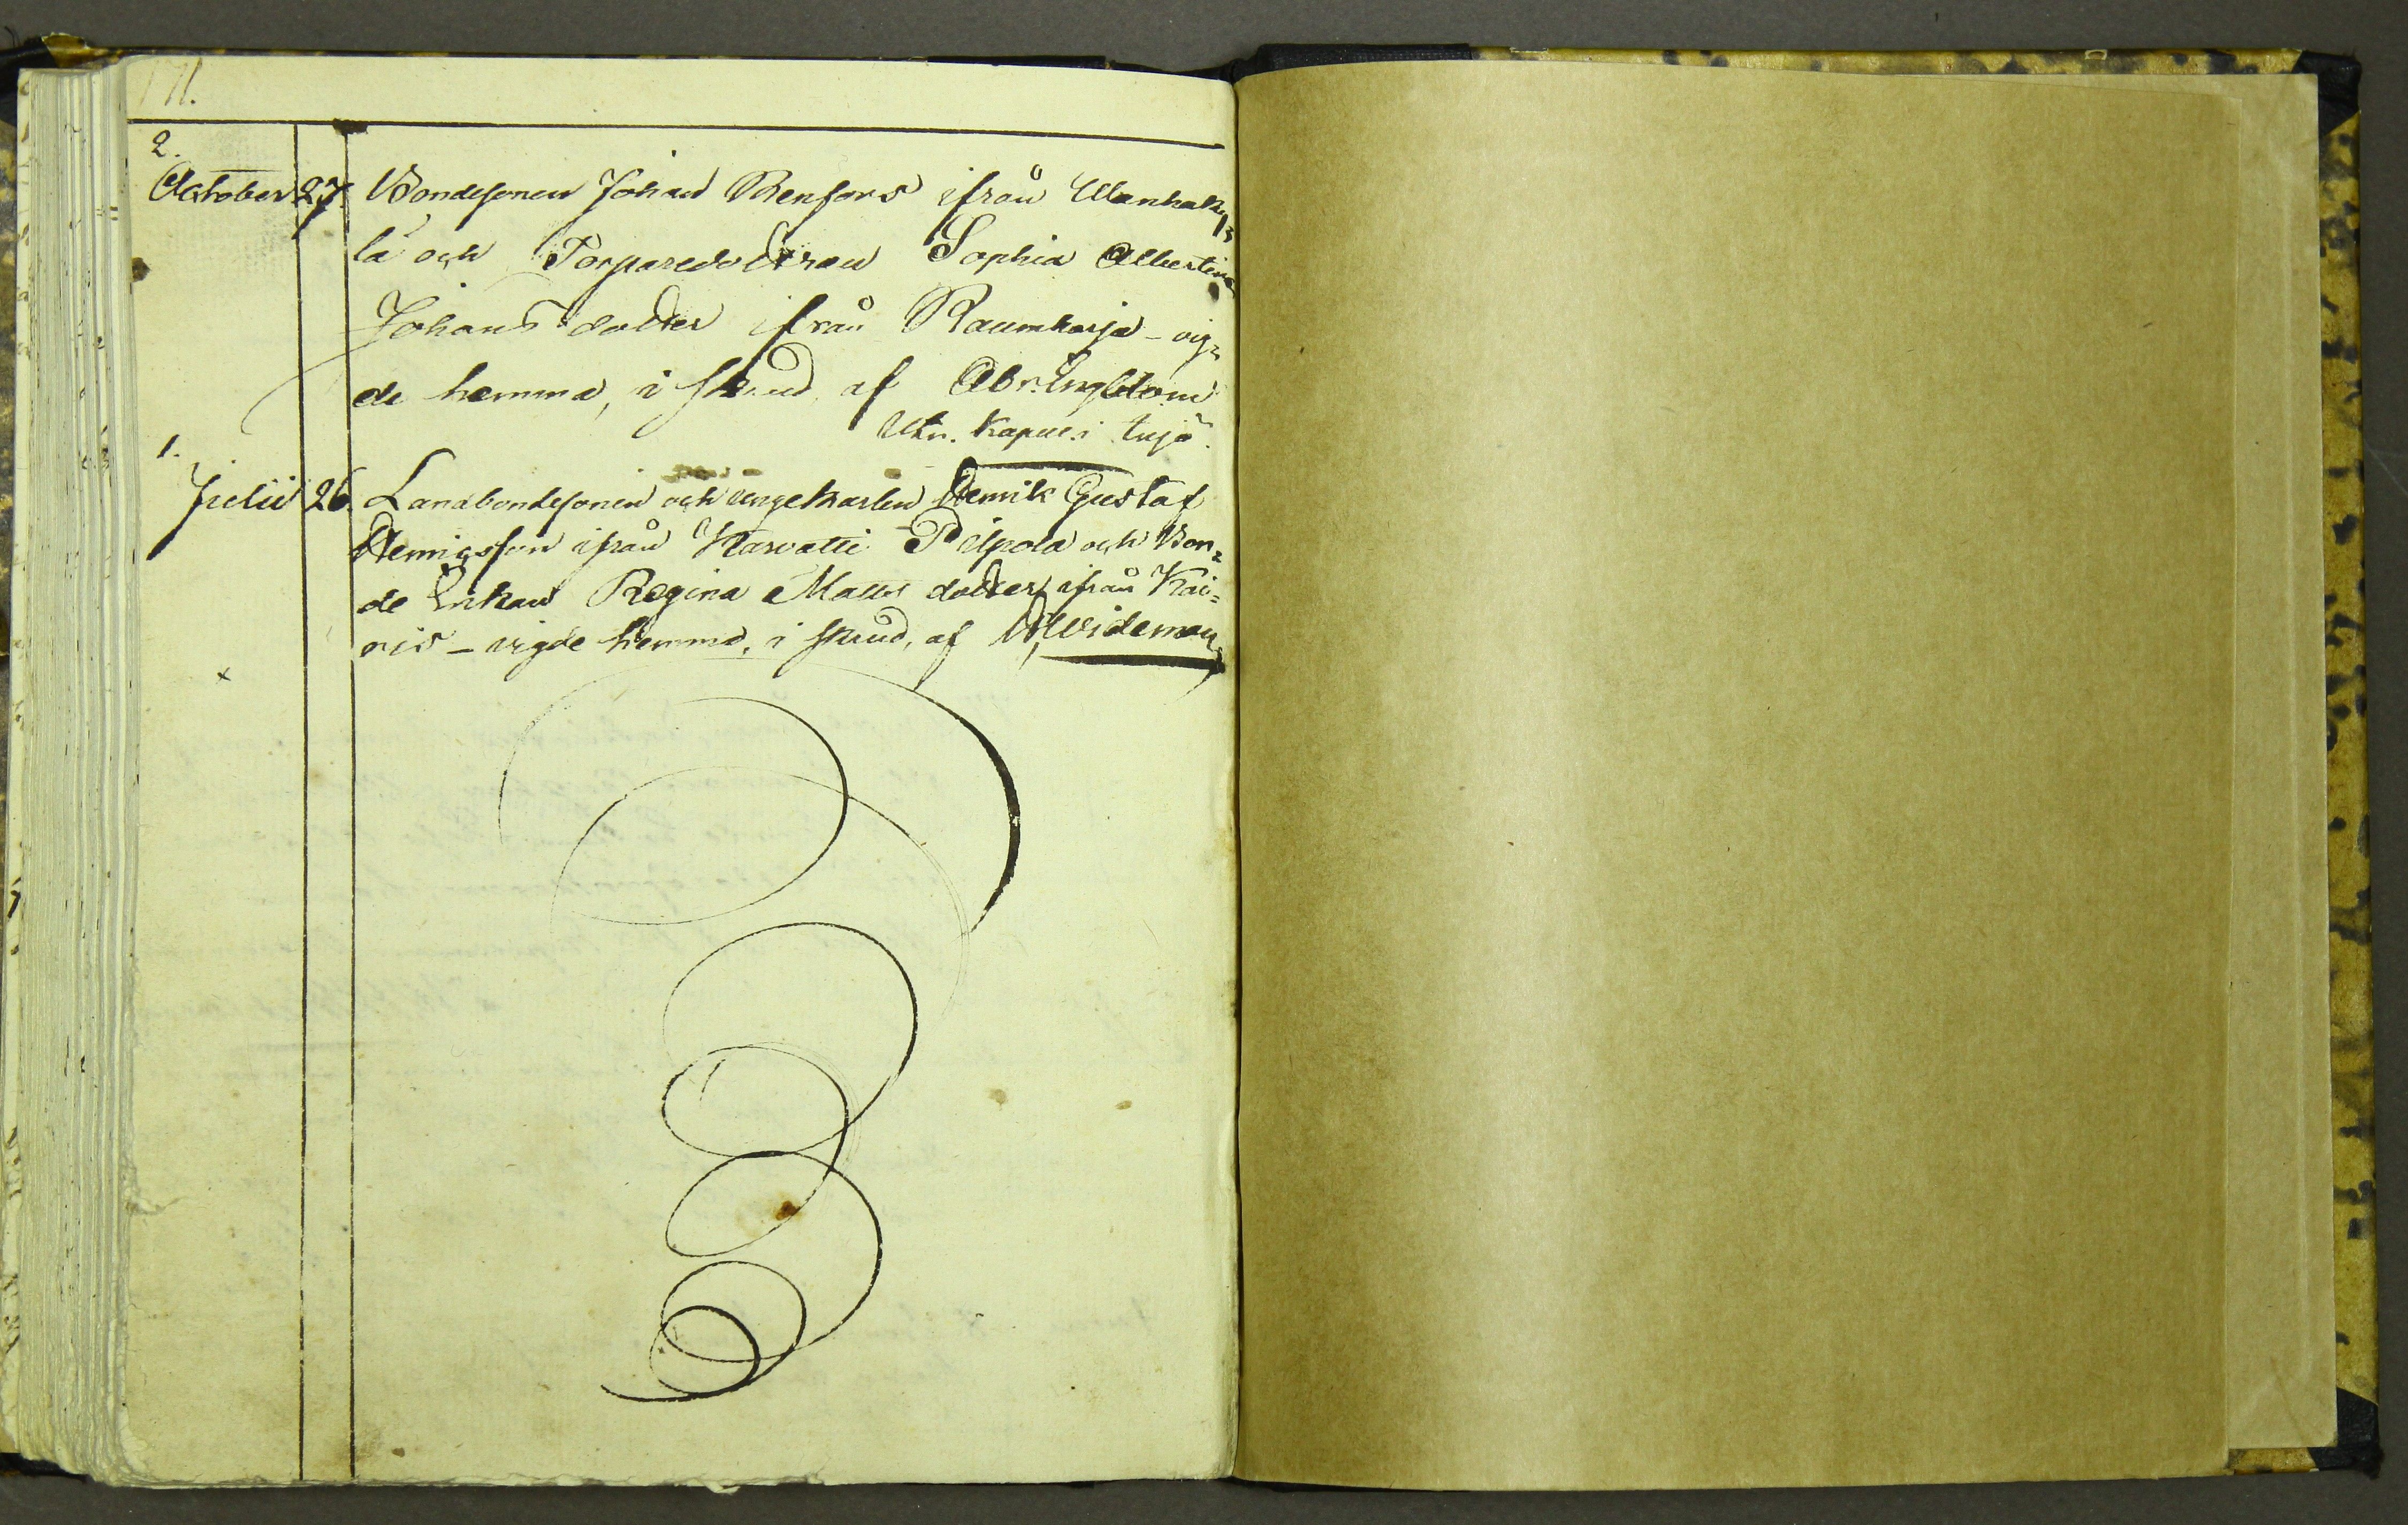 171.
2.
October 27 Bondesonen Johan Renfors ifrån Wanhaky=
lä och Torparedottren Sophia Albertina
Johansdotter ifrån Raumkarja - vig=
de hemma, i skrud, af Abr. Engblom
Utr. Kapell. i
1.
Julii 26. Landbondesonen och ungekarlen Henrik Gustaf
Henricsson ifrån Karvatti Pilpola och Bon=
de Enkan Regina Matts dotter ifrån Kai=
nis - vigde hemma, i skrud, af Wideman
x